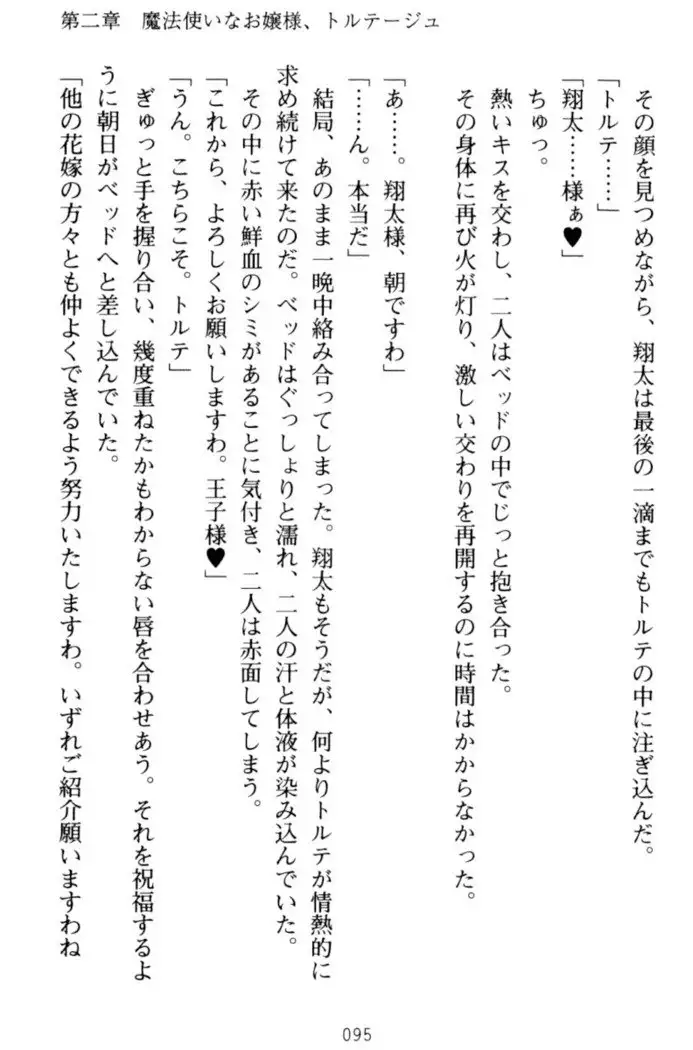 第二章　魔法使いなお嬢様、トルテージュ
その顔を見つめながら、翔太は最後の一滴までもトルテの中に注ぎ込んだ。
「トルテ……」
「翔太……様ぁ♥」
ちゅっ。
熱いキスを交わし、二人はベッドの中でじっと抱き合った。
その身体に再び火が灯り、激しい交わりを再開するのに時間はかからなかった。
「あ……。翔太様、朝ですわ」
「……ん。本当だ」
結局、あのまま一晩中絡み合ってしまった。翔太もそうだが、何よりトルテが情熱的に
求め続けて来たのだ。ベッドはぐっしょりと濡れ、二人の汗と体液が染み込んでいた。
その中に赤い鮮血のシミがあることに気付き、二人は赤面してしまう。
「これから、よろしくお願いしますわ。王子様♥」
「うん。こちらこそ。トルテ」
ぎゅっと手を握り合い、幾度重ねたかもわからない唇を合わせあう。それを祝福するよ
うに朝日がベッドへと差し込んでいた。
「他の花嫁の方々とも仲よくできるよう努力いたしますわ。いずれご紹介願いますわね
095